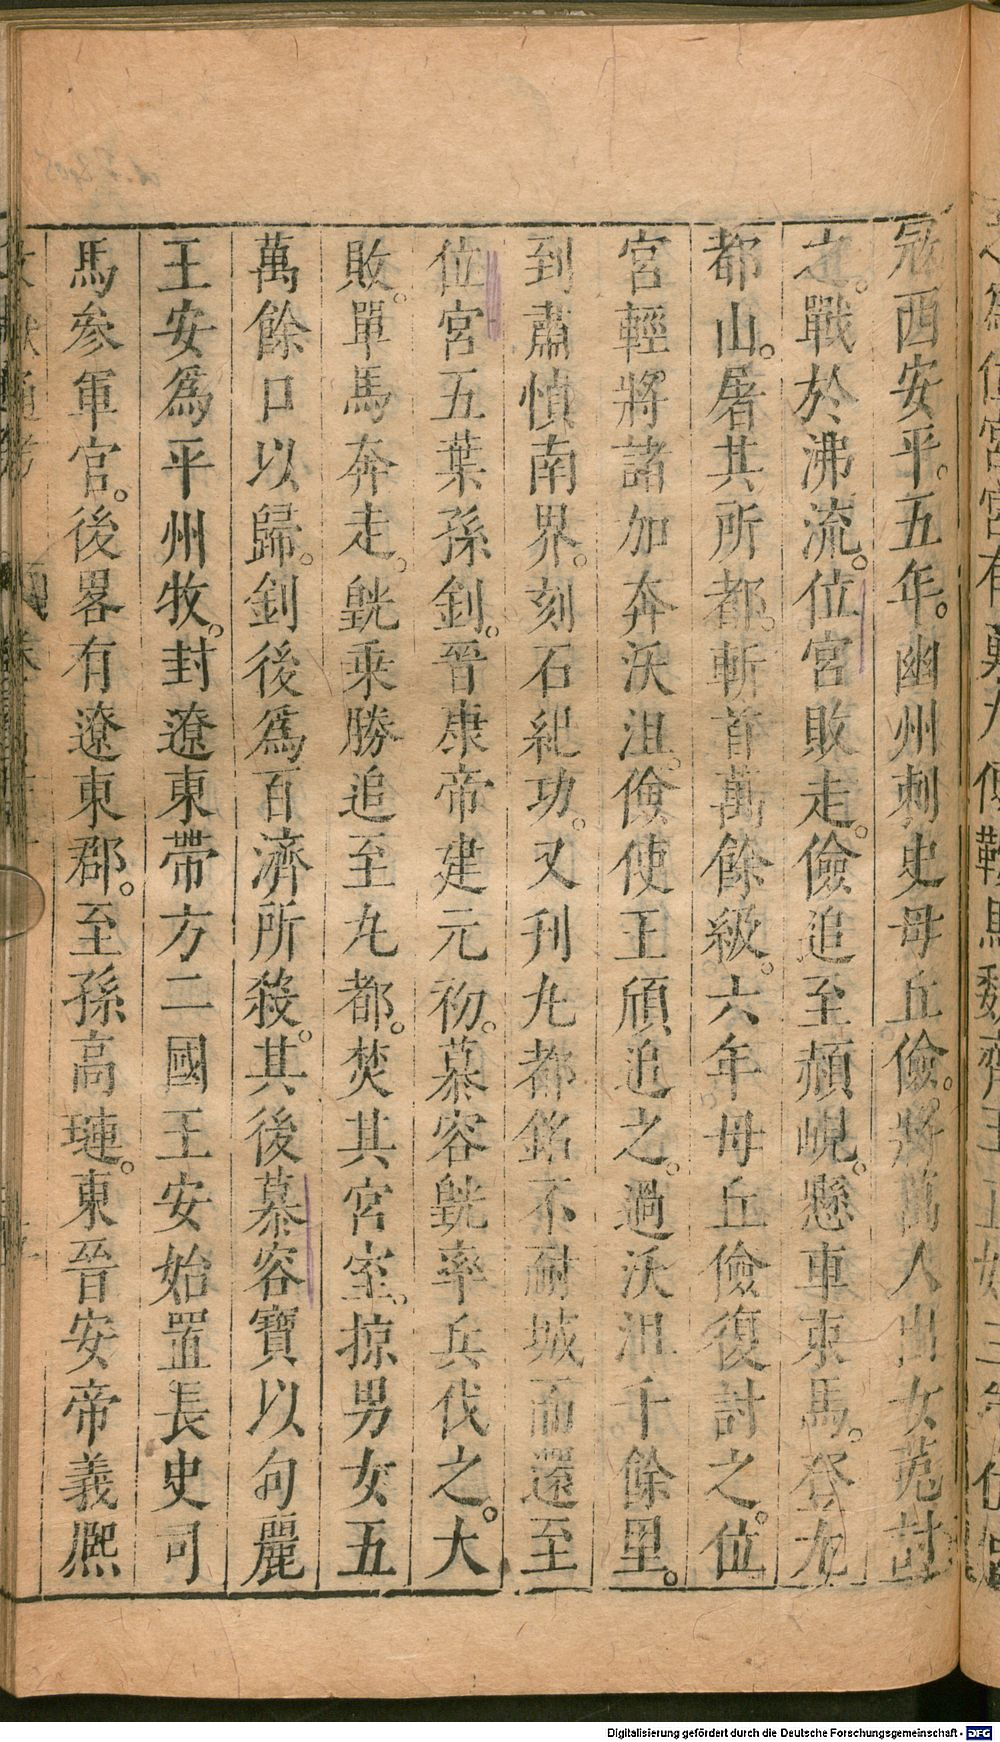 寇西安平。五年。幽州刺史毋丘儉。將萬人出女菟討
之。戰於沸流。位宮敗走。儉追至頳峴。懸車束馬。登九
都山。屠其所都。斬首萬餘級。六年毋丘儉復討之。位
宮輕將諸加奔沃沮。儉使王頎追之。過沃沮千餘里。
到肅慎南界。刻石紀功。又刊九都銘不耐城而還至
位宮五葉孫釗。晉康帝建元初。慕容皝率兵伐之。大
敗。單馬奔走。皝乗勝追至九都。焚其宮室。掠男女五
萬餘口以歸。釗後爲百濟所殺。其後慕容寶以句麗
王安爲平州牧。封遼東帶方二國王安始置長史司
馬參軍官。後畧有遼東郡。至孫高璉。東晉安帝義熈
Digitalisierung gefördert durch die Deutsche Forschungsgemeinschaft - DFG